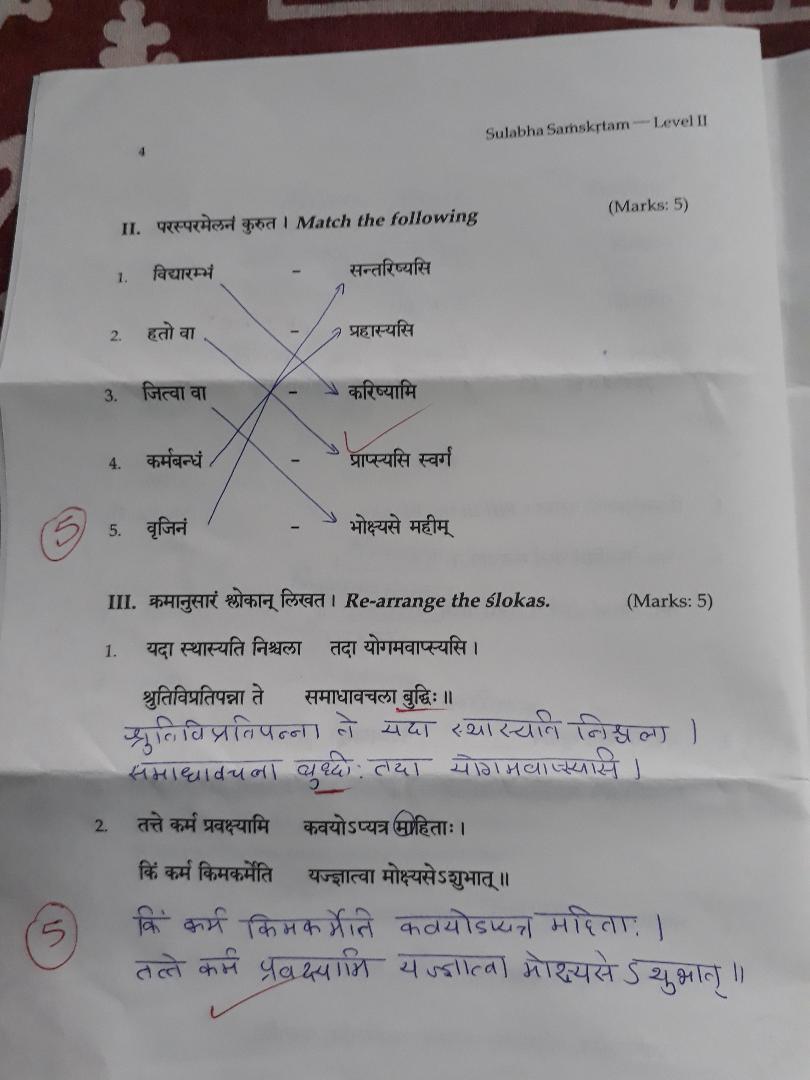 Sulabha Saṁskṛtam — Level II
4
II. परस्परमेलनं कुरुत । Match the following (Marks: 5)
1. विद्यारम्भं - सन्तरिष्यसि
2. हतो वा - प्रहास्यसि
3. जित्वा वा - करिष्यामि
4. कर्मबन्धं - प्राप्स्यसि स्वर्गं
5 5. वृजिनं - भोक्ष्यसे महीम्
III. क्रमानुसारं श्लोकान् लिखत । Re-arrange the ślokas. (Marks: 5)
1. यदा स्थास्यति निश्चला तदा योगमवाप्स्यसि ।
श्रुतिविप्रतिपन्ना ते समाधावचला बुद्धिः ॥
श्रुतिविप्रतिपन्ना ते यदा स्थास्यति निश्चला ।
समाधावचना बुध्दी: तदा योगमवाप्स्यसि ।
2. तत्ते कर्म प्रवक्ष्यामि कवयोऽप्यत्र मोहिताः ।
किं कर्म किमकर्मेति यज्ज्ञात्वा मोक्ष्यसेऽशुभात् ॥
किं कर्म किमकर्मेति कवयोऽप्यत्र महिता: ।
5 तत्ते कर्म प्रवक्ष्यामि यज्ज्ञात्वा मोक्ष्यसे ऽ शुभात् ॥